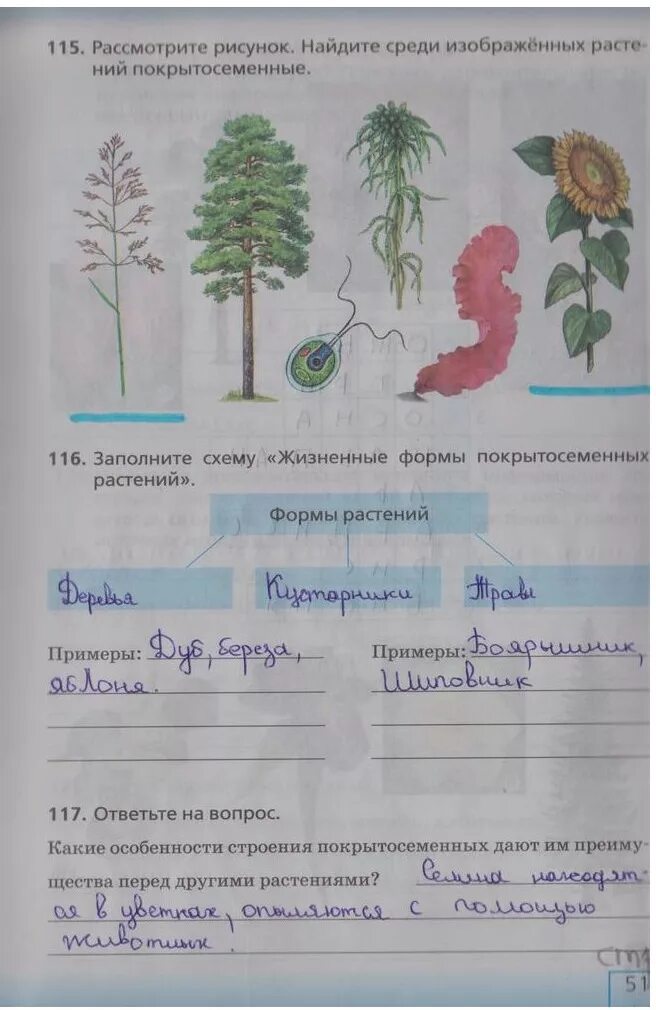 115. Рассмотрите рисунок. Найдите среди изображённых расте-
ний покрытосеменные.
116. Заполните схему «Жизненные формы покрытосеменных
растений».
Формы растений
Деревья Кустарники Травы
Примеры: Дуб, береза,
яблоня.
Примеры: Боярышник,
Шиповник
117. Ответьте на вопрос.
Какие особенности строения покрытосеменных дают им преиму-
щества перед другими растениями? Семена находят-
ся в цветках, опыляются с помощью
животных.
51